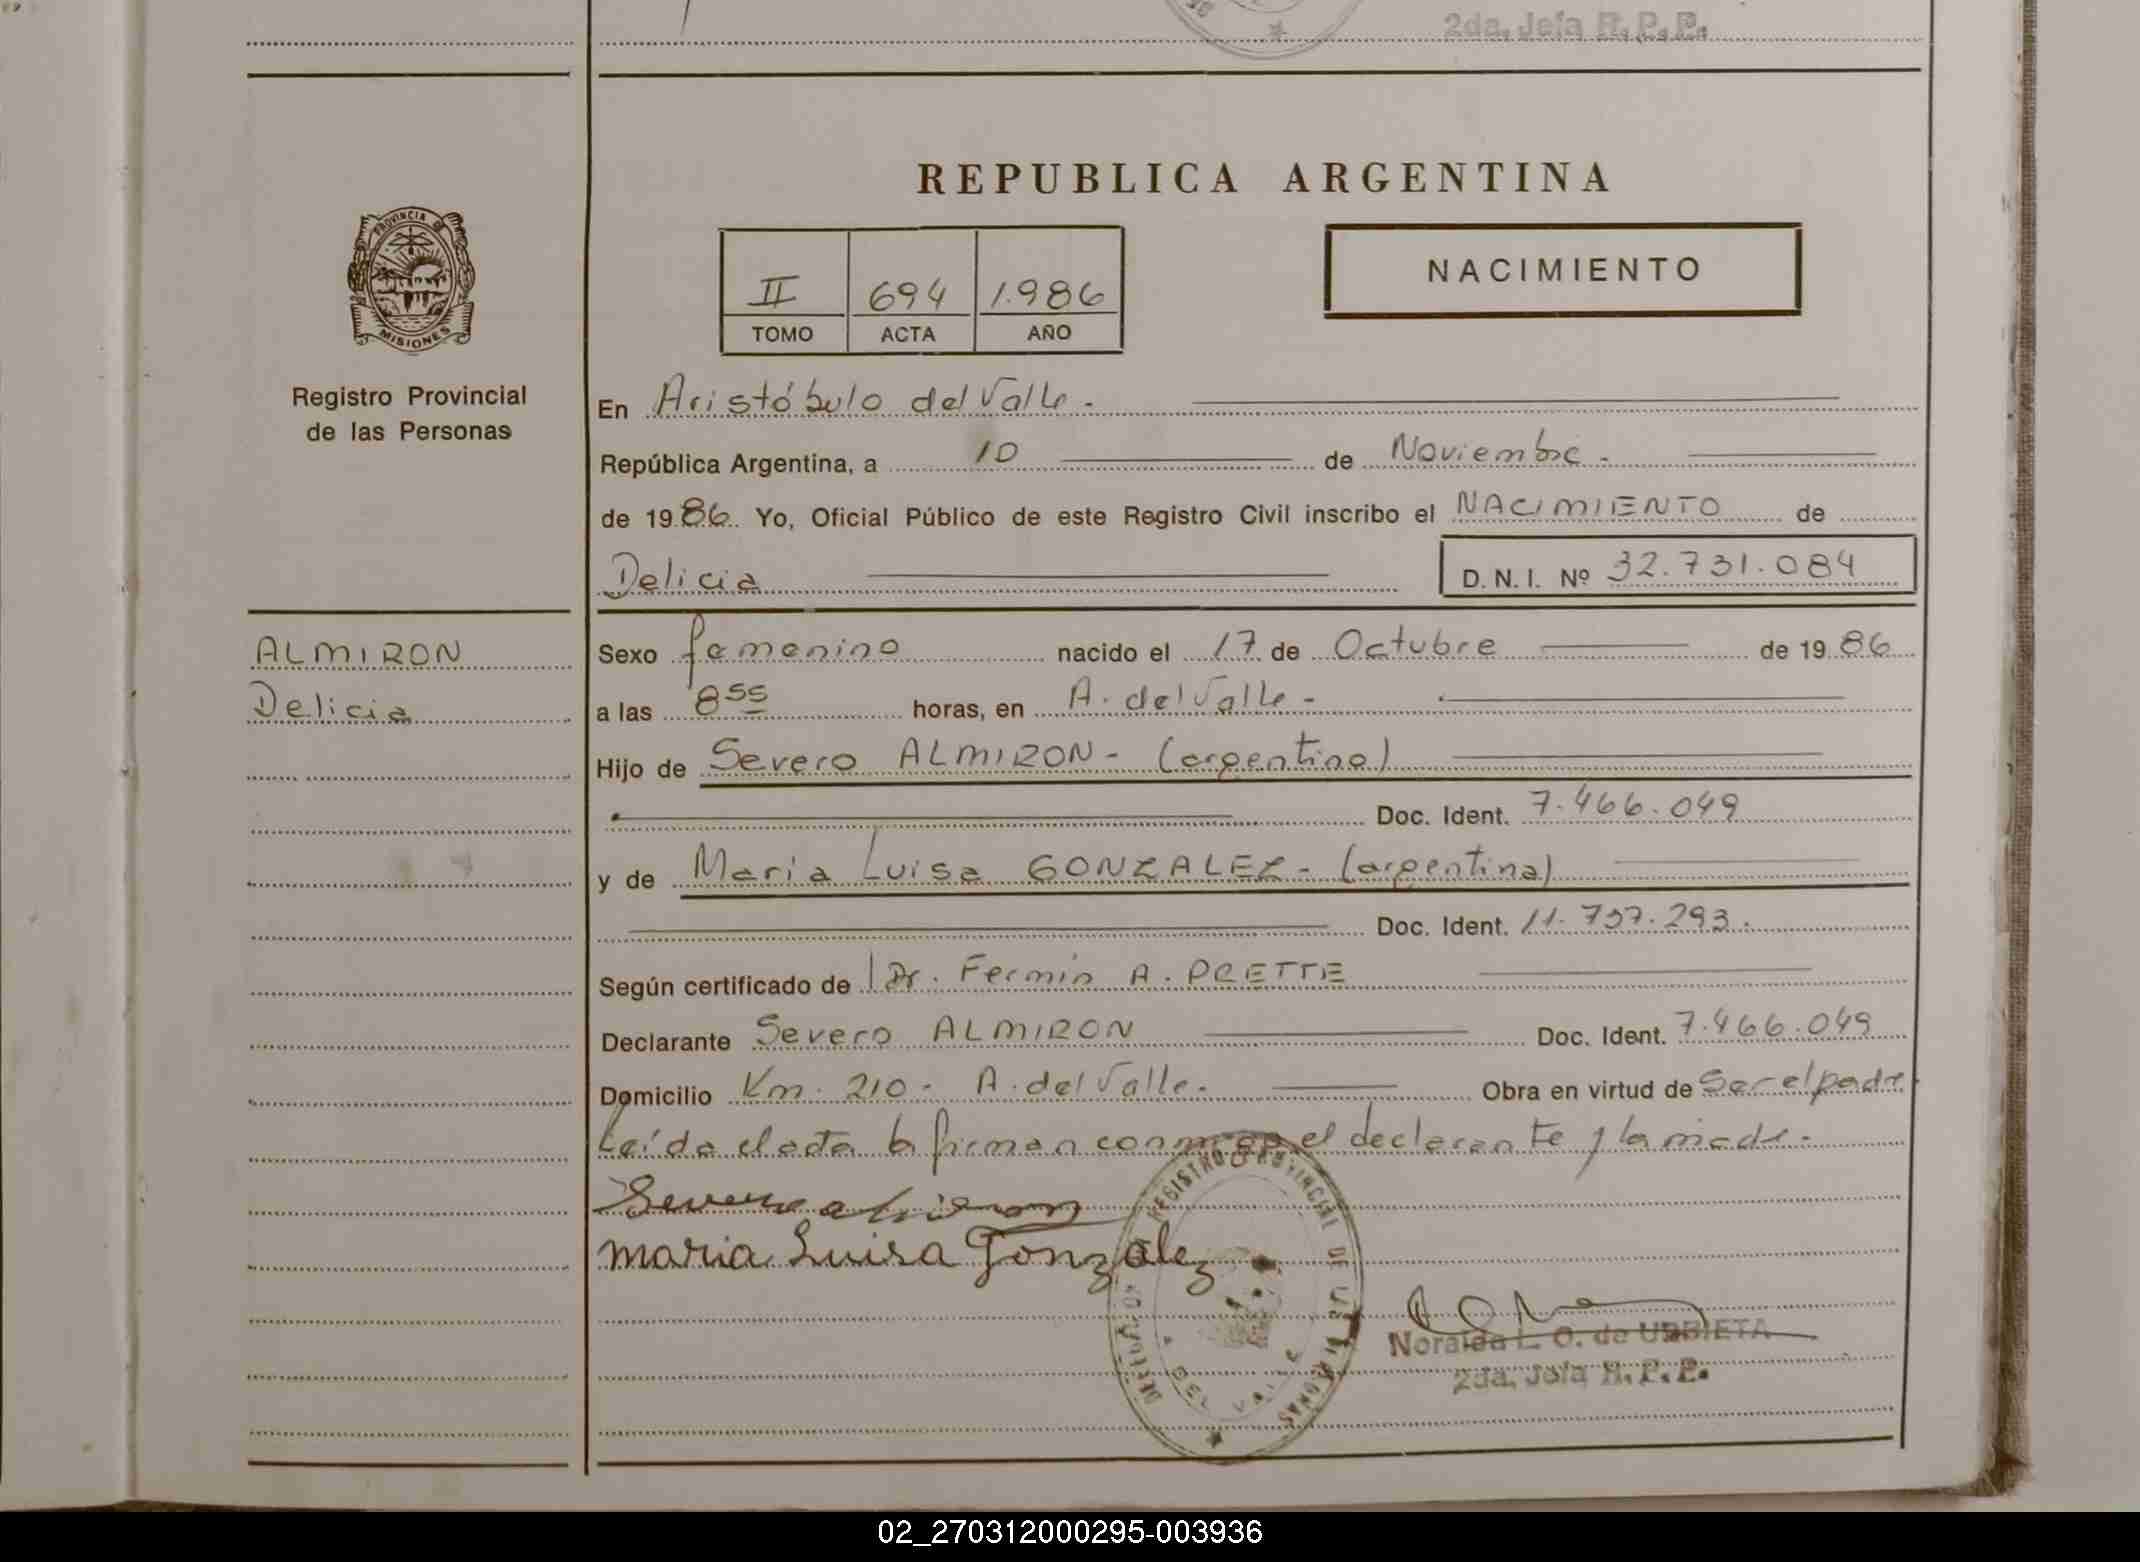 2da. Jefa R. P. P.
REPUBLICA ARGENTINA
PROVINCIA DE
MISIONES
Registro Provincial
de las Personas
II 694 1.986
TOMO ACTA AÑO
NACIMIENTO
En Aristóbulo del Valle.-
República Argentina, a 10 de Noviembre.-
de 1986. Yo, Oficial Público de este Registro Civil inscribo el NACIMIENTO de
Delicia D. N. I. Nº 32.731.084
ALMIRON
Delicia
Sexo femenino nacido el 17 de Octubre de 1986
a las 8 55 horas, en A. del Valle.-
Hijo de Severo ALMIRON - (argentino)
Doc. Ident. 7.466.049
y de Maria Luisa GONZALEZ - (argentina)
Doc. Ident. 11.737.293.
Según certificado de Dr. Fermin A. PRETTE
Declarante Severo ALMIRON Doc. Ident. 7.466.049
Domicilio Km. 210 - A. del Valle.- Obra en virtud de Ser el padre.
Leída el acta la firman conmigo el declarante y la madre.-
Severo almiron
maria Luisa Gonzalez
REGISTRO PROVINCIAL DE LAS PERSONAS
Noralda L. O. de URBIETA
2da. Jefa R. P. P.
02_270312000295-003936